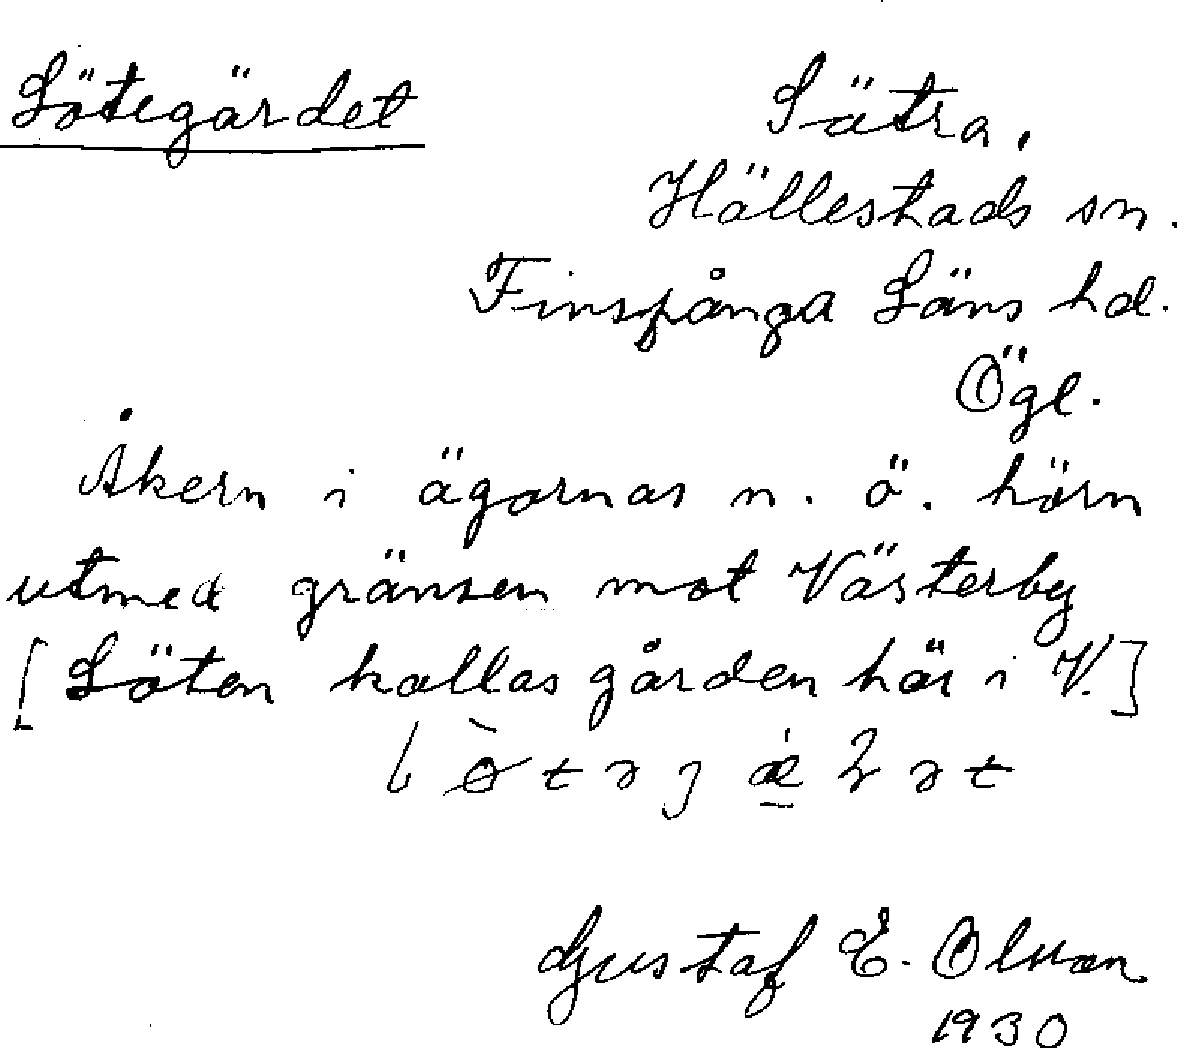 Lötegärdet
Sätra,
Hällestads sn.
Finspånga Läns hd.
Ögl.
Åkern i ägornas n. ö. hörn
utmed gränsen mot Västerby
[Löten kallas gården här i V.]
Gustaf E. Olsson
1930